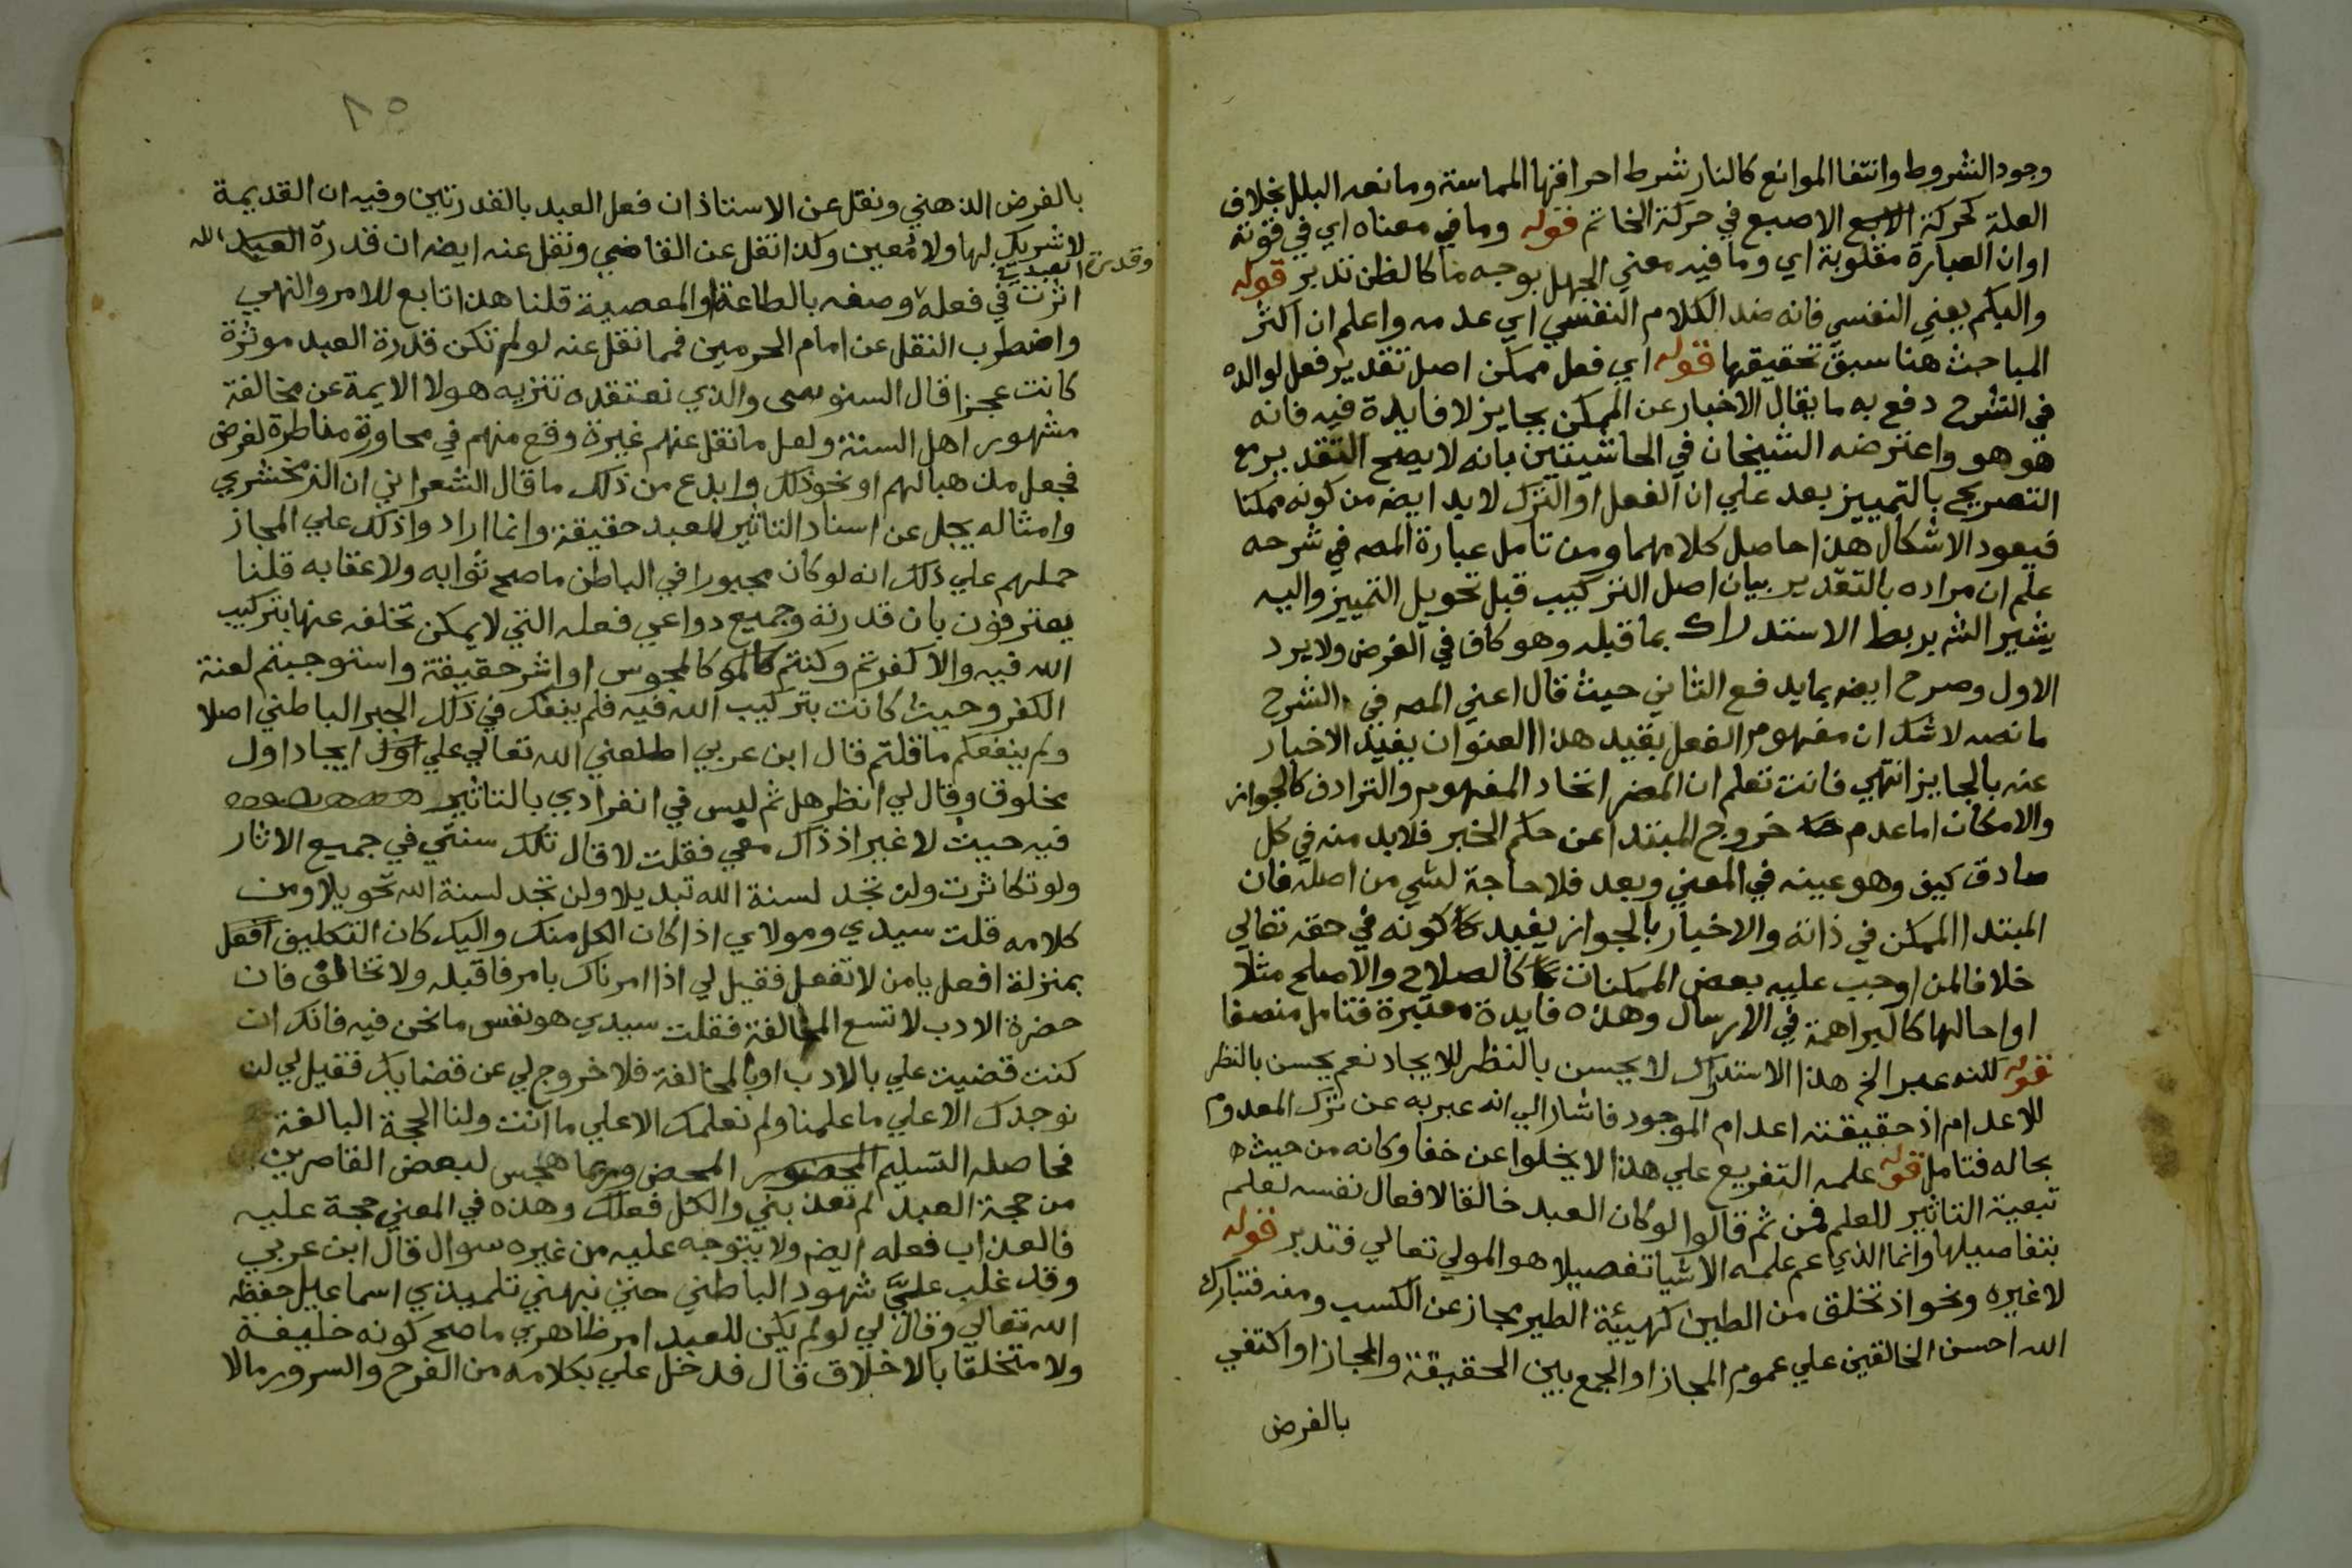 وجود الشروط وانتفا الموانع كالنار شرط احراقها المماسة ومانعه البلل بخلاف
العلة كحركة الاصبع في حركة الخاتم قوله وما في معناه اي في قوته
او ان العبارة مقلوبة اي وما فيه معني الجهل بوجه ما كالظن تدبر قوله
والبكم يعني النفسي فانه ضد الكلام النفسي اي عدمه واعلم ان اكثر
المباحث هنا سبق تحقيقها قوله اي فعل ممكن اصل تقدير فعل لوالده
في الشرح دفع به ما يقال الاخبار عن الممكن بجايز لا فايدة فيه فانه
هو هو واعترضه الشيخان في الحاشيتين بانه لا يصح التقدير مع
التصريح بالتمييز بعد علي ان الفعل او الترك لا بد ايضه من كونه ممكنا
فيعود الاشكال هذا حاصل كلامهما ومن تامل عبارة المصه في شرحه
علم ان مراده بالتقدير بيان اصل التركيب قبل تحويل التمييز واليه
يشير الشه بربط الاستدراك بما قبله وهو كاف في الغرض ولا يرد
الاول وصرح ايضه بما يدفع الثاني حيث قال اعني المصه في الشرح
ما نصه لا شك ان مفهوم الفعل بقيد هذا العنوان يفيد الاخبار
عنه بالجايز انتهي فانت تعلم ان المضر اتحاد المفهوم والترادف كالجواز
والامكان اما عدم خروج المبتدا عن حكم الخبر فلا بد منه في كل
صادق كيف وهو عينه في المعني وبعد فلا حاجة لشي من اصله فان
المبتدا الممكن في ذاته والاخبار بالجواز يفيد كونه في حقه تعالي
خلافا لمن اوجب عليه بعض الممكنات كالصلاح والاصلح مثلا
او احالها كالبراهمة في الارسال وهذه فايدة معتبرة فتامل منصفا
قوله لكنه عبر الخ هذا الاستدراك لا يحسن بالنظر للايجاد نعم يحسن بالنظر
للاعدام اذ حقيقته اعدام الموجود فاشار الي انه عبر به عن ترك المعدوم
بحاله فتامل قوله علمه التفريع علي هذا لا يخلوا عن خفا وكانه من حيث
تبعية التاثير للعلم فمن ثم قالوا لو كان العبد خالقا لافعال نفسه لعلم
بتفاصيلها وانما الذي عم علمه الاشيا تفصيلا هو المولي تعالي فتدبر قوله
لا غيره ونحو اذ تخلق من الطين كهيئة الطير مجاز عن الكسب ومنه فتبارك
الله احسن الخالقين علي عموم المجاز او الجمع بين الحقيقة والمجاز او اكتفي
بالفرض
٨٥
بالفرض الذهني ونقل عن الاستاذ ان فعل العبد بالقدرتين وفيه ان القديمة
لا شريك لها ولا معين وكذا نقل عن القاضي ونقل عنه ايضه ان قدرة الله
وقدرة العبد في
اثرت في فعله وصفه بالطاعة او المعصية قلنا هذا تابع للامر والنهي
واضطرب النقل عن امام الحرمين فمما نقل عنه لو لم تكن قدرة العبد موثرة
كانت عجزا قال السنوسي والذي نعتقده تنزيه هولا الايمة عن مخالفة
مشهور اهل السنة ولعل ما نقل عنهم غيرة وقع منهم في محاورة مناظرة لغرض
فجعل مذهبا لهم او نحو ذلك وابدع من ذلك ما قال الشعراني ان الزمخشري
وامثاله يجل عن اسناد التاثير للعبد حقيقة وانما ارادوا ذلك علي المجاز
حملهم علي ذلك انه لو كان مجبورا في الباطن ما صح ثوابه ولا عقابه قلنا
يعترفون بان قدرته وجميع دواعي فعله التي لا يمكن تخلفه عنها بتركيب
الله فيه والا كفرتم وكنتم كالمجوس او اشر حقيقة واستوجبتم لعنة
الكفر وحيث كانت بتركيب الله فيه فلم ينفك في ذلك الجبر الباطني اصلا
ولم ينفعكم ما قلتم قال ابن عربي اطلعني الله تعالي علي ايجاد اول
مخلوق وقال لي انظر هل ثم لبس في انفرادي بالتاثير
فيه حيث لا غير اذ ذاك معي فقلت لا قال تلك سنتي في جميع الاثار
ولو تكاثرت ولن تجد لسنة الله تبديلا ولن تجد لسنة الله تحويلا ومن
كلامه قلت سيدي ومولاي اذا كان الكل منك واليك كان التكليف افعل
بمنزلة افعل يا من لا تفعل فقيل لي اذا امرناك بامر فاقبله ولا تحاقق فان
حضرة الادب لا تسع المخالفة فقلت سيدي هو نفس ما نحن فيه فانك ان
كنت قضيت علي بالادب او بالمخالفة فلا خروج لي عن قضايك فقيل لي لن
نوجدك الا علي ما علمنا ولم نعلمك الا علي ما انت ولنا الحجة البالغة
فحاصله التسليم المحض وربما هجس لبعض القاصرين
من حجة العبد لم تعذبني والكل فعلك وهذه في المعني حجة عليه
فالعذاب فعله ايضه ولا يتوجه عليه من غيره سوال قال ابن عربي
وقد غلب عليَّ شهود الباطني حتي نبهني تلميذي اسماعيل حفظه
الله تعالي وقال لي لو لم يكن للعبد امر ظاهري ما صح كونه خليفة
ولا متخلقا بالاخلاق قال فدخل علي بكلامه من الفرح والسرور ما لا